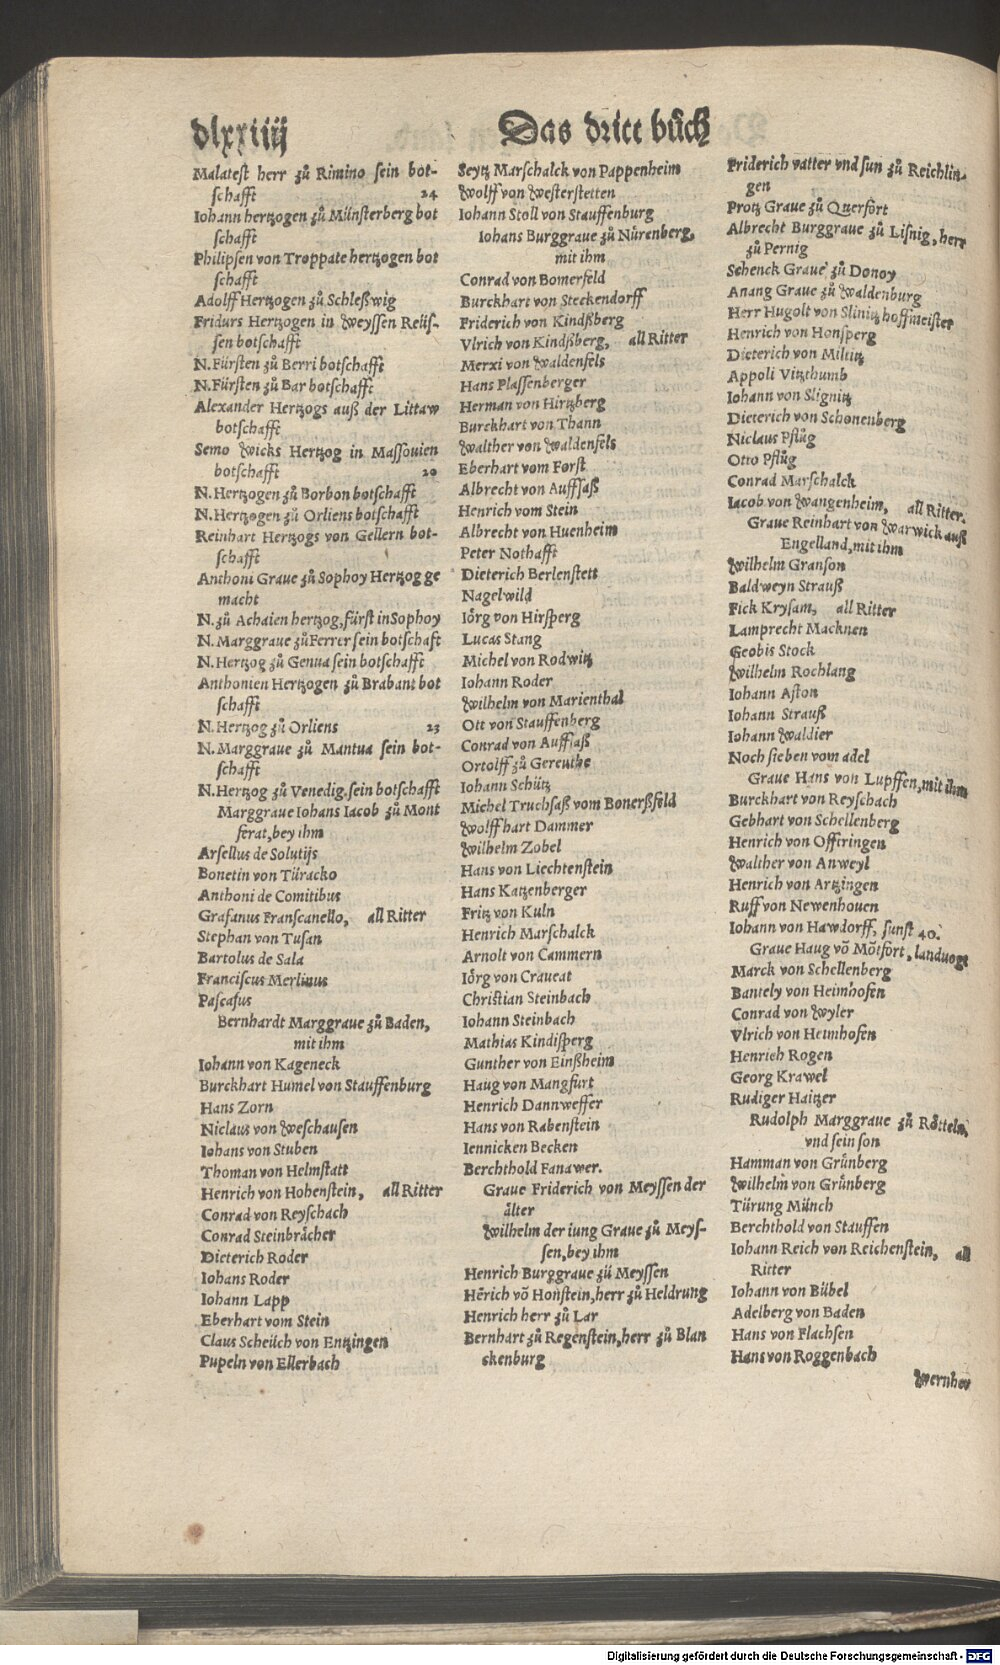 dlxxiiij
Das dritt bůch
Malatest herr zů Rimino sein bot-
schafft 24
Iohann hertzogen zů Münsterberg bot
schafft
Philipsen von Troppate hertzogen bot
schafft
Adolff Hertzogen zů Schleßwig
Fridurs Hertzogen in Weyssen Reüs-
sen botschafft
N. Fürsten zů Berri botschafft
N. Fürsten zů Bar botschafft
Alexander Hertzogs auß der Littaw
botschafft
Semo Wicks Hertzog in Massouien
botschafft 20
N. Hertzogen zů Borbon botschafft
N. Hertzogen zů Orliens botschafft
Reinhart Hertzogs von Gellern bot-
schafft
Anthoni Graue zů Sophoy Hertzog ge
macht
N. zů Achaien hertzog, fürst in Sophoy
N. Marggraue zů Ferrer sein botschaft
N. Hertzog zů Genua sein botschafft
Anthonien Hertzogen zů Brabant bot
schafft
N. Hertzog zů Orliens 23
N. Marggraue zů Mantua sein bot-
schafft
N. Hertzog zů Venedig, sein botschafft
Marggraue Iohans Iacob zů Mont
ferat, bey ihm
Arsellus de Solutijs
Bonetin von Türacko
Anthoni de Comitibus
Grafanus Franscanello, all Ritter
Stephan von Tusan
Bartolus de Sala
Franciscus Merlinus
Pascasus
Bernhardt Marggraue zů Baden,
mit ihm
Iohann von Kageneck
Burckhart Humel von Stauffenburg
Hans Zorn
Niclaus von Weschausen
Iohans von Stuben
Thoman von Helmstatt
Henrich von Hohenstein, all Ritter
Conrad von Reyschach
Conrad Steinbrächer
Dieterich Roder
Iohans Roder
Iohann Lapp
Eberhart vom Stein
Claus Scheüch von Entzingen
Pupeln von Ellerbach
Seytz Marschalck von Pappenheim
Wolff von Westerstetten
Iohann Stoll von Stauffenburg
Iohans Burggraue zů Nürenberg,
mit ihm
Conrad von Bomerfeld
Burckhart von Steckendorff
Friderich von Kindßberg
Vlrich von Kindßberg, all Ritter
Merxi von Waldenfels
Hans Plassenberger
Herman von Hirtzberg
Burckhart von Thann
Walther von Waldenfels
Eberhart vom Forst
Albrecht von Auffsaß
Henrich vom Stein
Albrecht von Huenheim
Peter Nothafft
Dieterich Berlenstett
Nagelwild
Iörg von Hirsperg
Lucas Stang
Michel von Rodwitz
Iohann Roder
Wilhelm von Marienthal
Ott von Stauffenberg
Conrad von Auffsaß
Ortolff zů Gereuthe
Iohann Schütz
Michel Truchsaß vom Bonerßfeld
Wolffhart Dammer
Wilhelm Zobel
Hans von Liechtenstein
Hans Katzenberger
Fritz von Kuln
Henrich Marschalck
Arnolt von Cammern
Iörg von Craueat
Christian Steinbach
Iohann Steinbach
Mathias Kindisperg
Gunther von Einßheim
Haug von Mangfurt
Henrich Dannweffer
Hans von Rabenstein
Iennicken Becken
Berchthold Fanawer.
Graue Friderich von Meyssen der
älter
Wilhelm der iung Graue zů Meys-
sen, bey ihm
Henrich Burggraue zů Meyssen
Hērich vō Honstein, herr zů Heldrung
Henrich herr zů Lar
Bernhart zů Regenstein, herr zů Blan
ckenburg
Friderich vatter vnd sun zů Reichlin-
gen
Protz Graue zů Querfort
Albrecht Burggraue zů Lisnig, herr
zů Pernig
Schenck Graue zů Donoy
Anang Graue zů Waldenburg
Herr Hugolt von Slinitz hoffmeister
Henrich von Honsperg
Dieterich von Miltitz
Appoli Vitzthumb
Iohann von Slignitz
Dieterich von Schonenberg
Niclaus Pflůg
Otto Pflůg
Conrad Marschalck
Iacob von Wangenheim, all Ritter.
Graue Reinhart von Warwick auß
Engelland, mit ihm
Wilhelm Granson
Baldweyn Strauß
Fick Krysam, all Ritter
Lamprecht Macknen
Geobis Stock
Wilhelm Rochlang
Iohann Aston
Iohann Strauß
Iohann Waldier
Noch sieben vom adel
Graue Hans von Lupffen, mit ihm
Burckhart von Reyschach
Gebhart von Schellenberg
Henrich von Offtringen
Walther von Anweyl
Henrich von Artzingen
Ruff von Newenhouen
Iohann von Hawdorff, sunst 40.
Graue Haug vō Mōtfort, landuogt
Marck von Schellenberg
Bantely von Heimhofen
Conrad von Wyler
Vlrich von Heimhofen
Henrich Rogen
Georg Krawel
Rudiger Haitzer
Rudolph Marggraue zů Rötteln,
vnd sein son
Hamman von Grünberg
Wilhelm von Grünberg
Türung Münch
Berchthold von Stauffen
Iohann Reich von Reichenstein, all
Ritter
Iohann von Bübel
Adelberg von Baden
Hans von Flachsen
Hans von Roggenbach
Wernher
Digitalisierung gefördert durch die Deutsche Forschungsgemeinschaft - DFG